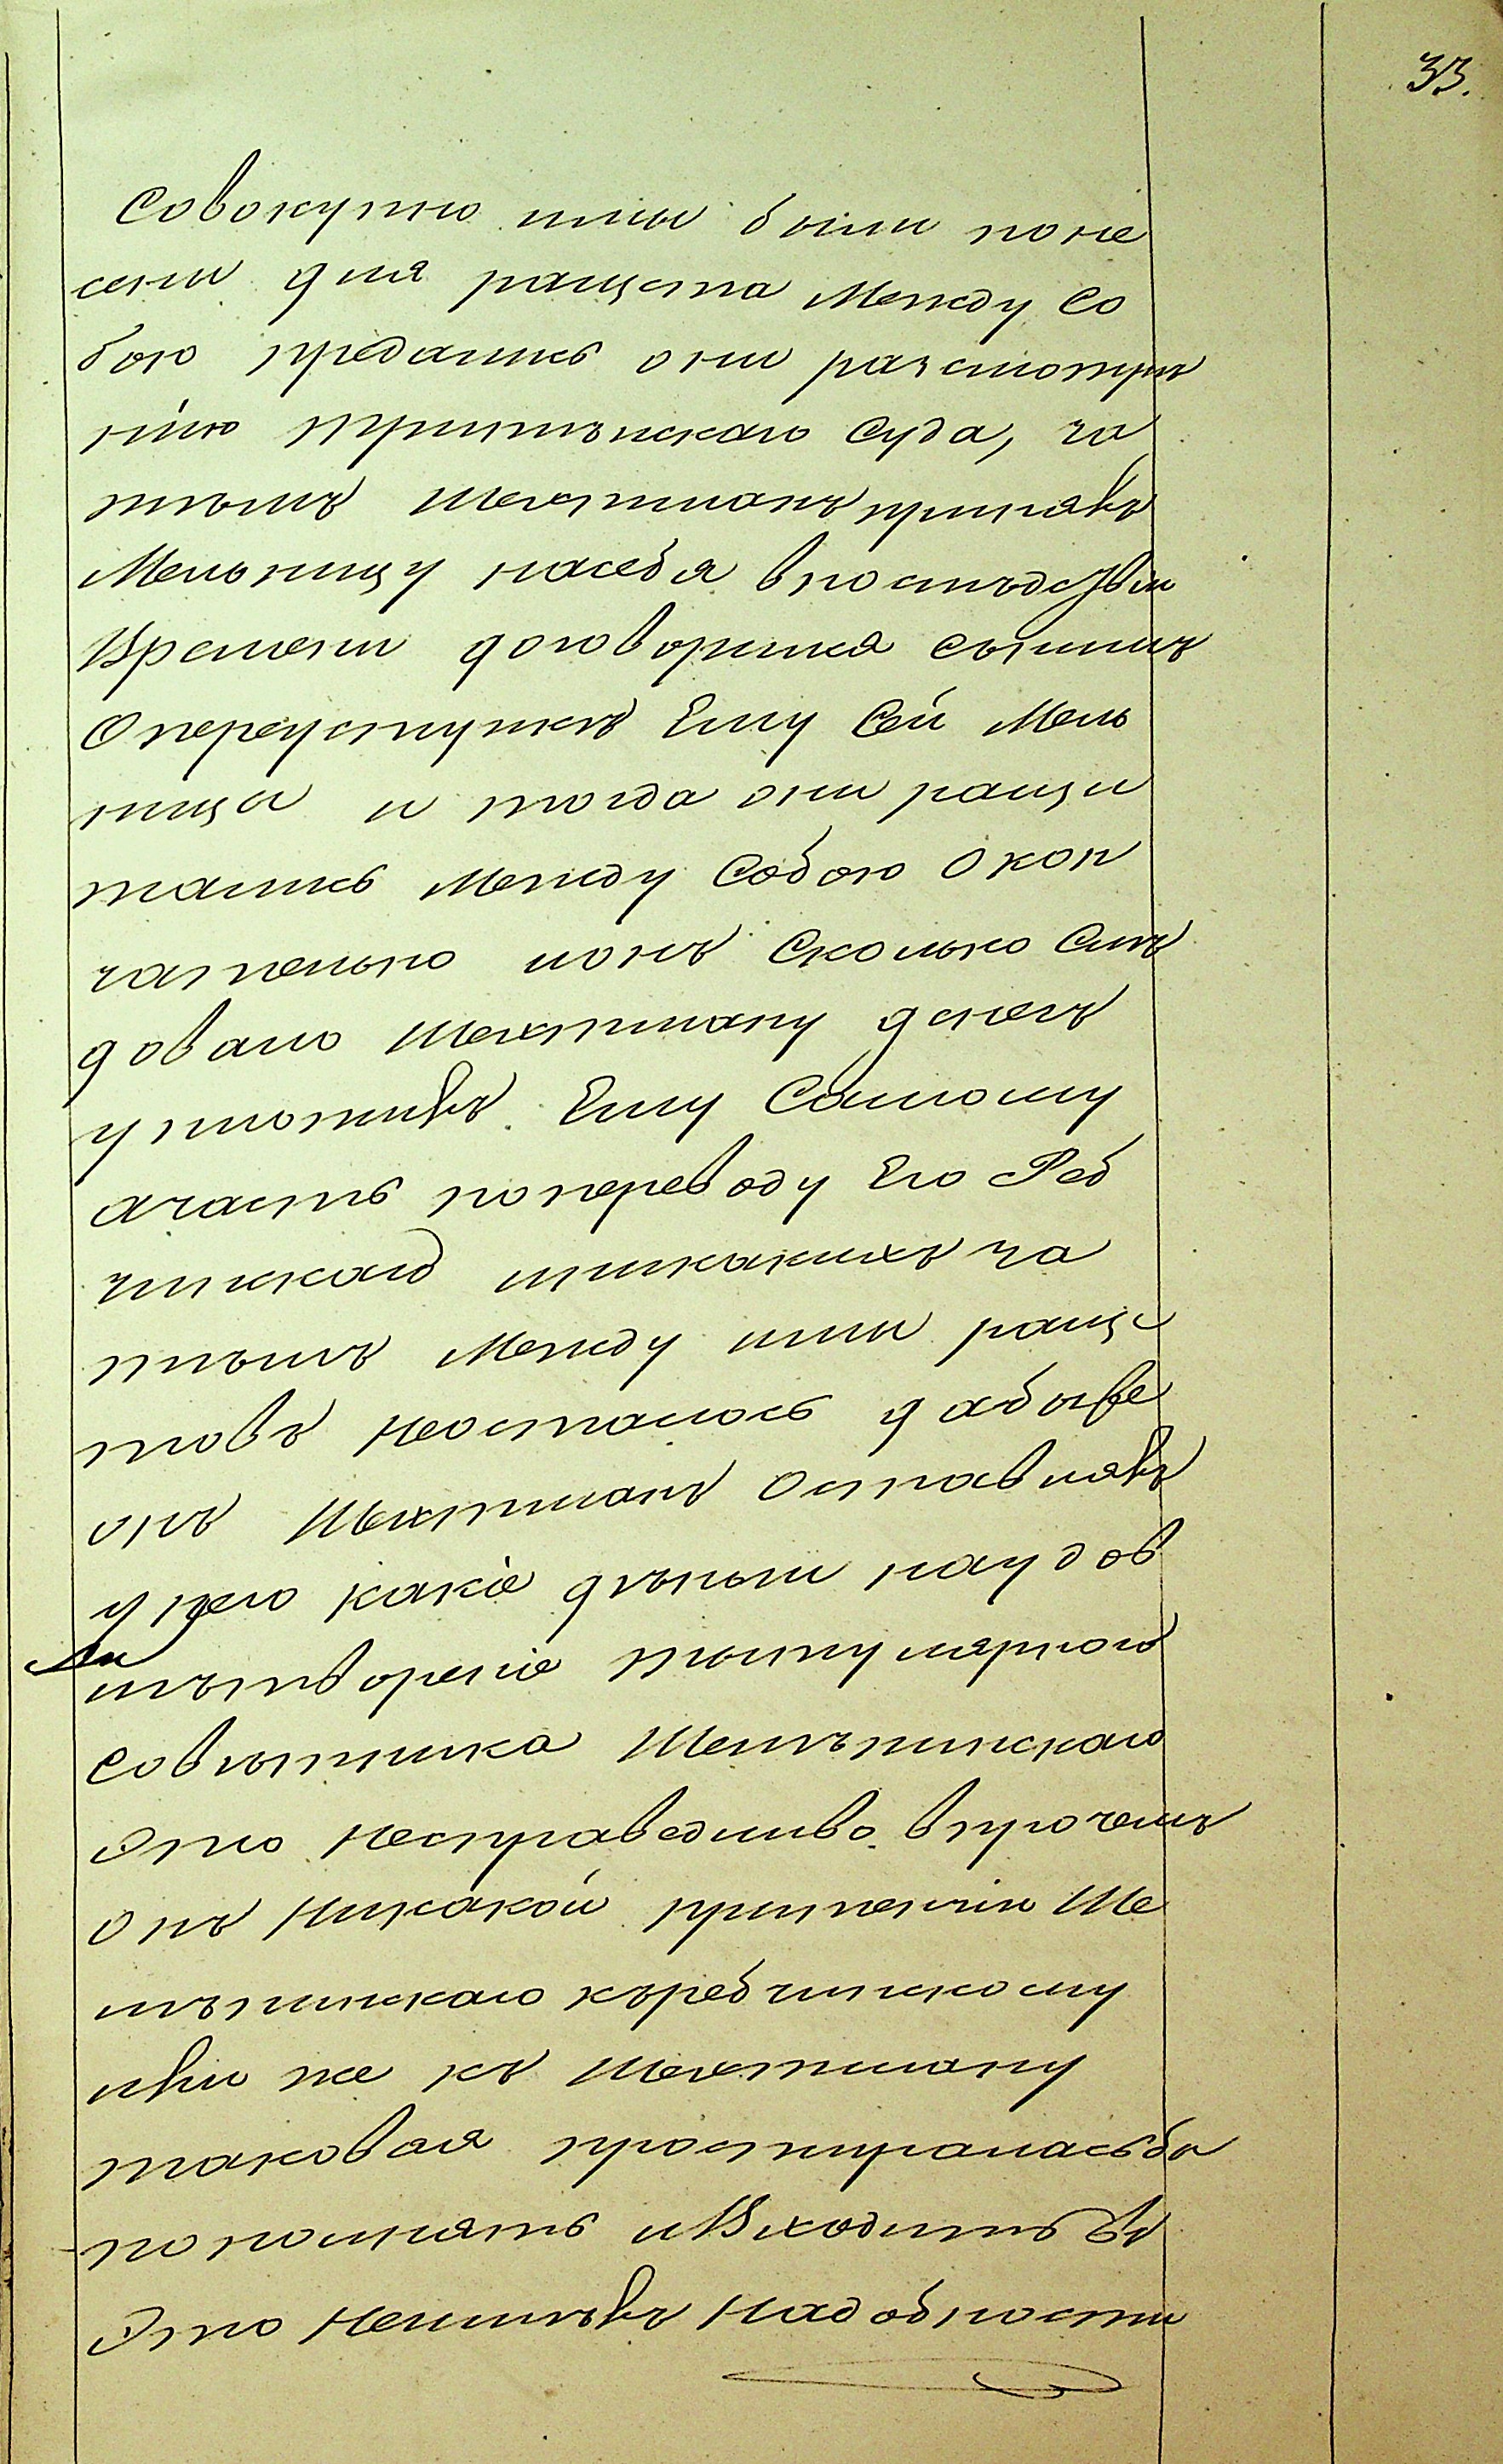 33.
Совокупно ими были поне
сены для ращета Между со
бою предались они разсмотре
нію третѣйскаго Суда, за
тѣмъ Шехтманъ принявъ
Мельницу насебя впослѣдствіи
Времени договорился снимъ
О переуступкѣ Ему Сей Мель
ницы и тогда они ращи
тались Между Собою Окон
чательно ионъ Сколько Слѣ
довало Шехтману денегъ
уплотивъ Ему Самому
ачасть попереводу Его Реб
чинскаго иникакихъ за
тѣмъ Между ими раще
товъ неосталось дабыве
онъ Шехтманъ Оставлявъ
унего какіе деньги наудов
лѣтвореніе титулярного
Совѣтника Шемѣтинскаго
Это несправедливо впрочемъ
Онъ Никакой притензіи Ше
мѣтинскаго къребчинскому
ибы же къ Шехтману
таковая простираласьбы
непомнитъ иВходить въ
Это Неимѣвъ Надобности